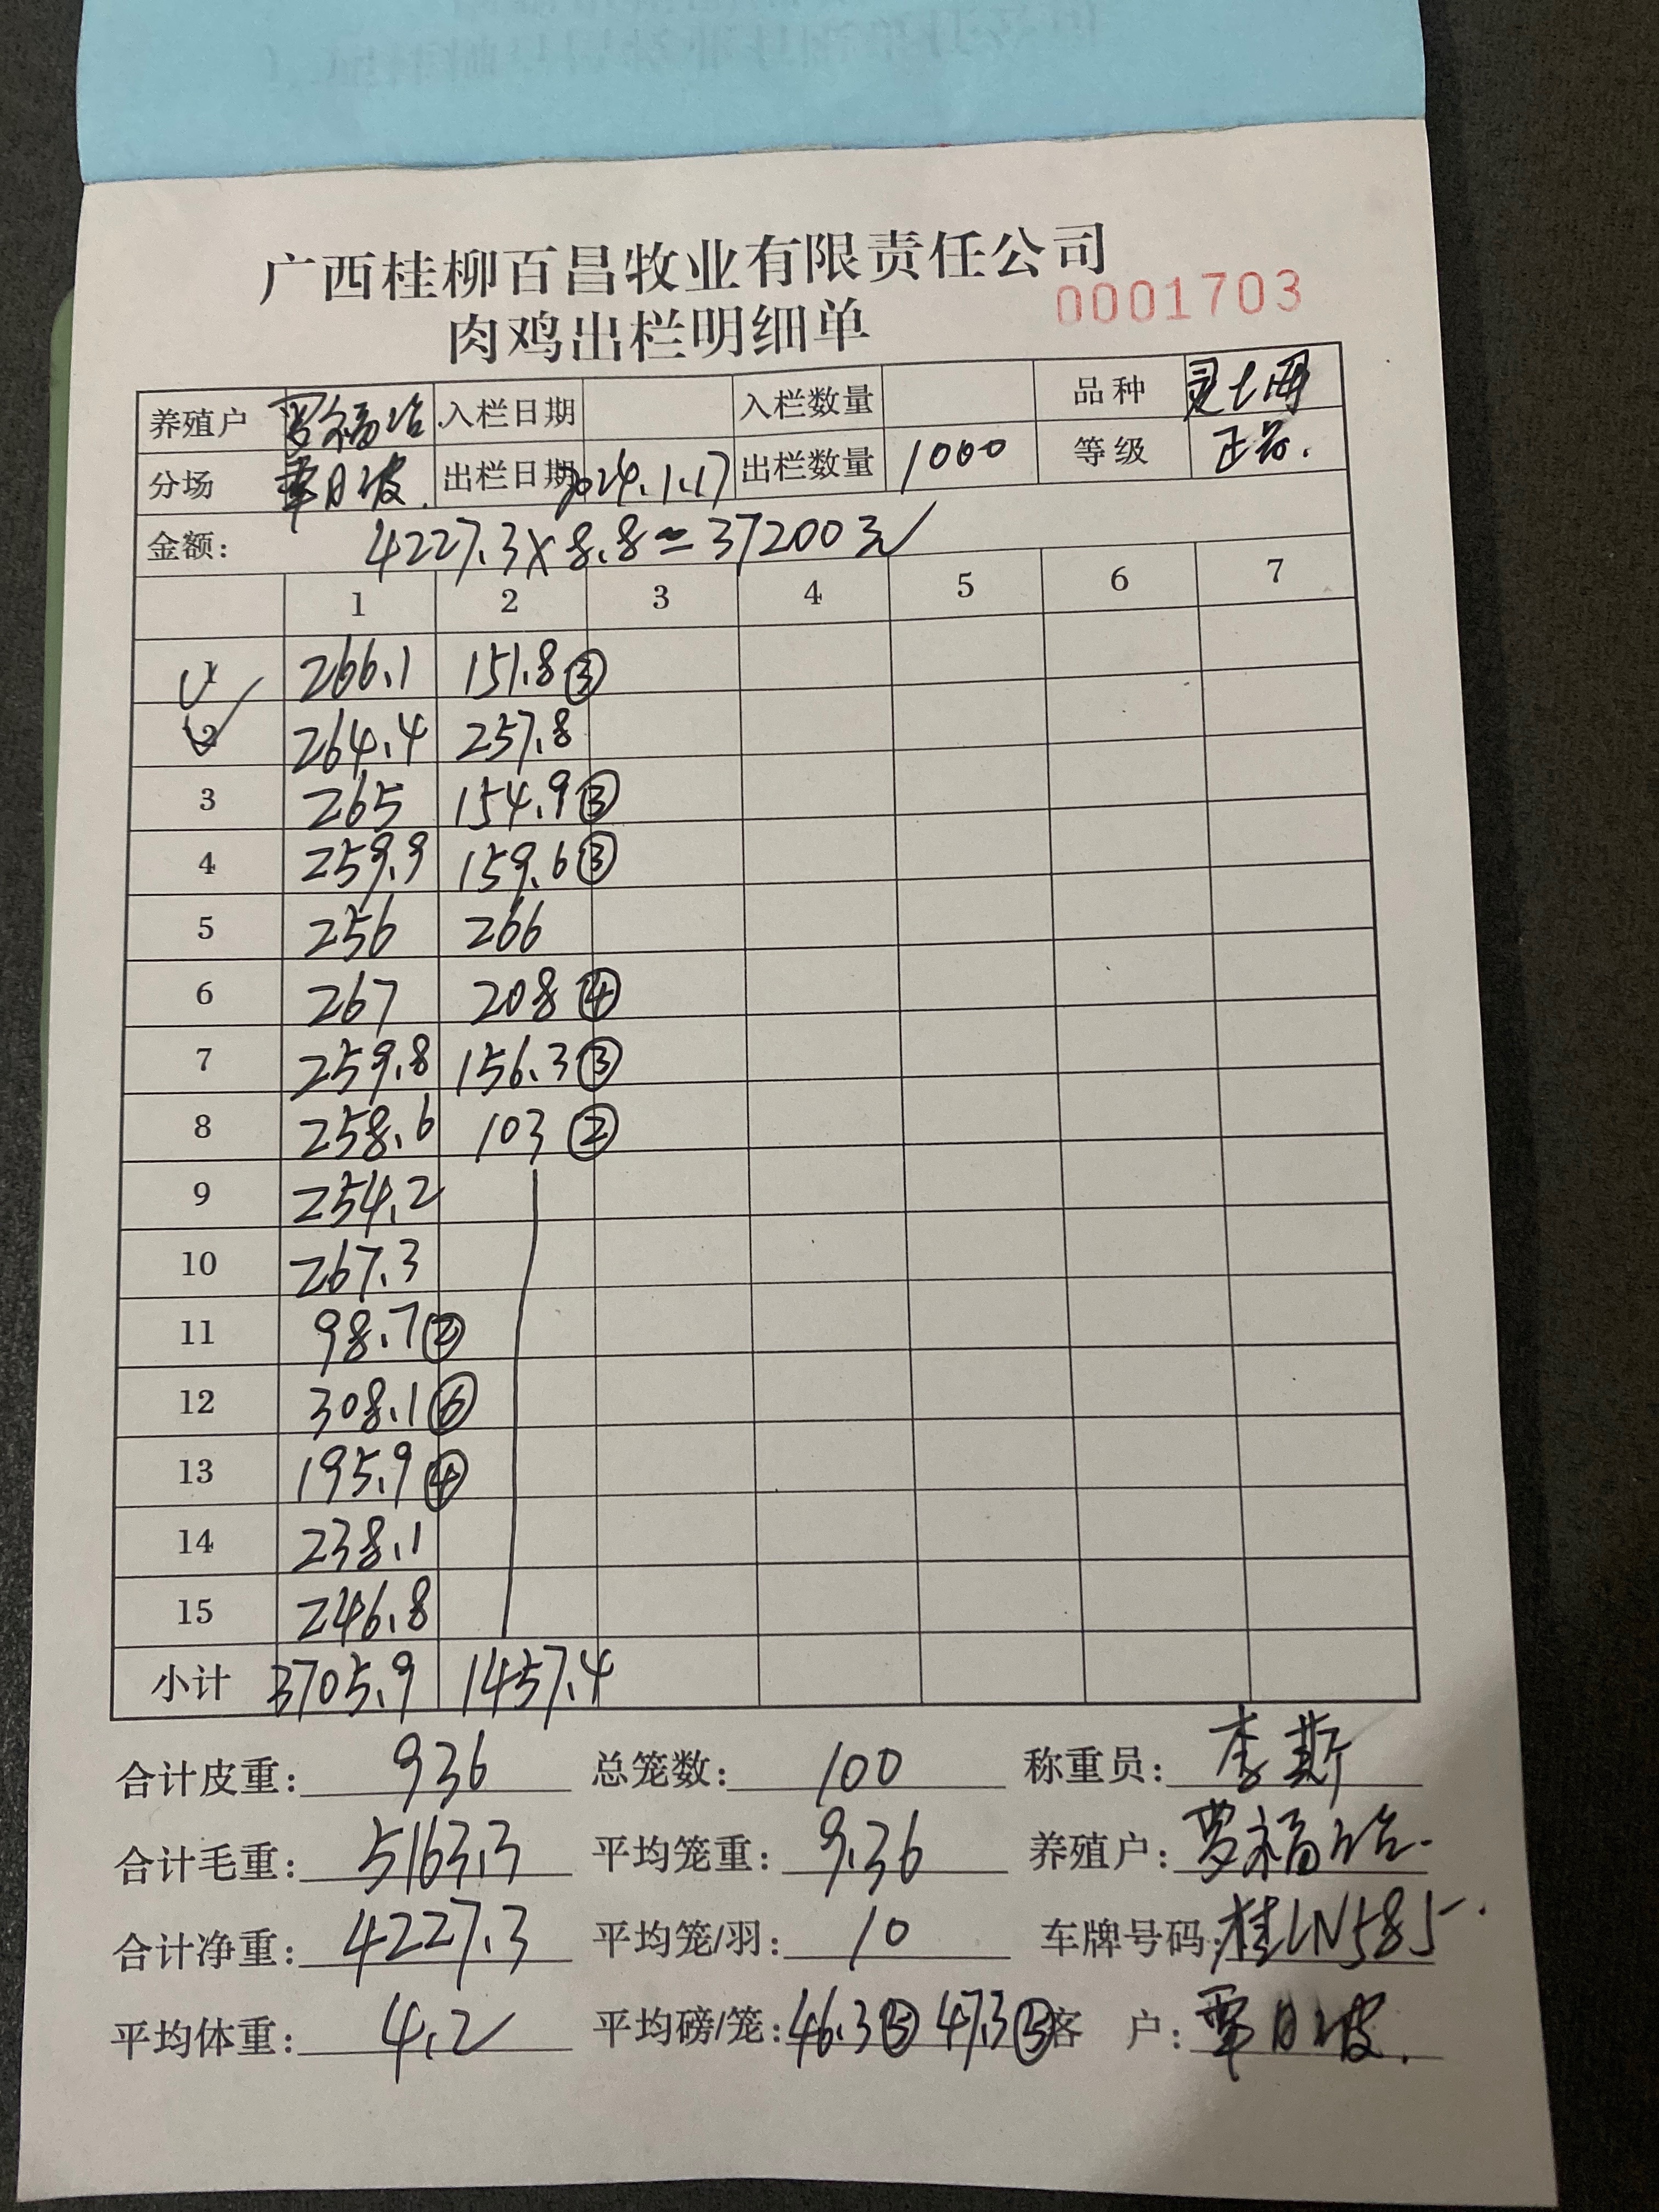 广西桂柳百昌牧业有限责任公司
肉鸡出栏明细单 0001703
养殖户 罗福 入栏日期 入栏数量 品种
分场 覃日坡. 出栏日期 2024.1.17 出栏数量 1000 等级 正常.
金额: 4227.3×8.8=37200元
1 2 3 4 5 6 7
1 266.1 151.8③
2 264.4 257.8
3 265 154.9③
4 259.9 159.6③
5 256 266
6 267 208④
7 259.8 156.3③
8 258.6 103②
9 254.2
10 267.3
11 98.7②
12 308.1⑥
13 195.9④
14 238.1
15 246.8
小计 3705.9 1457.4
合计皮重: 936 总笼数: 100 称重员: 李斯
合计毛重: 5163.3 平均笼重: 9.36 养殖户: 罗福
合计净重: 4227.3 平均笼/羽: 10 车牌号码: 桂LN585
平均体重: 4.2 平均磅/笼: 46.3⑤ 47.3⑤ 客 户: 覃日坡.